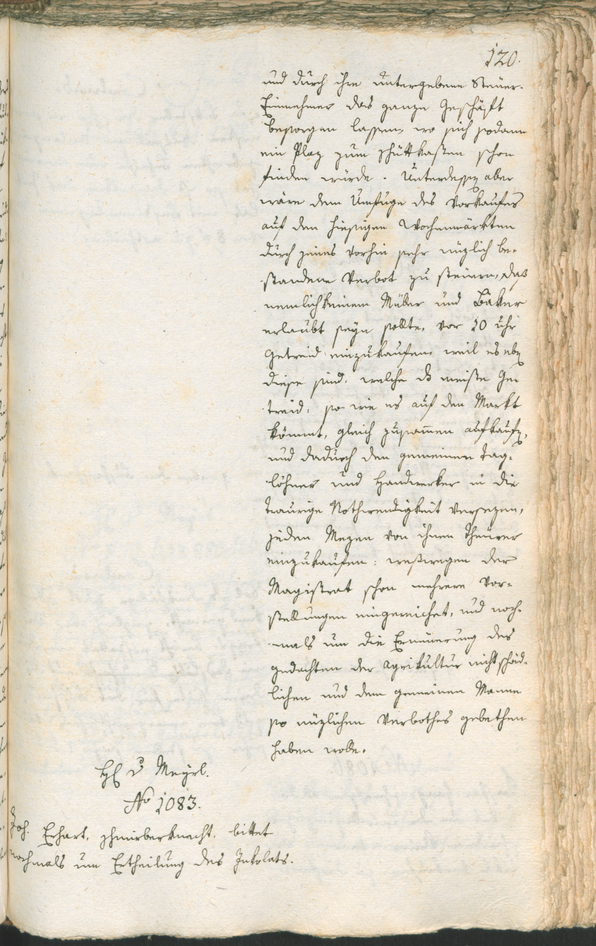 120.
und durch ihre untergebene Steuer-
Einnehmer das ganze Geschäft
besorgen lassen, wo sich sodann
ein Plaz zum Schüttkasten schon
finden würde. Unterdessen aber
wäre dem Unfuge des Vorkaufes
auf den hiesigen Wochenmärkten
durch jenes vorhin sehr nüzlich be-
standene Verbot zu steuern, daß
nemlich keinem Müller und Beker
erlaubt seyn sollte, vor 10 uhr
Getreid einzukaufen, weil es eben
diese sind, welche das meiste Ge-
treid, so wie es auf den Markt
kömmt, gleich zusammen aufkaufen,
und dadurch den gemeinen Tag-
löhner und Handwerker in die
traurige Nothwendigkeit versezen,
jeden Mezen von ihnen theurer
einzukaufen: weswegen der
Magistrat schon mehrere Vor-
stellungen eingereichet, und noch-
mals um die Erneuerung des
gedachten der Agrikultur nicht schäd-
lichen und dem gemeinen Manne
so nüzlichen Verbothes gebethen
haben wolle.
H v Mayrl.
No 1083.
Joh. Erhart, bittet
nochmals um Ertheilung des Inkolats.